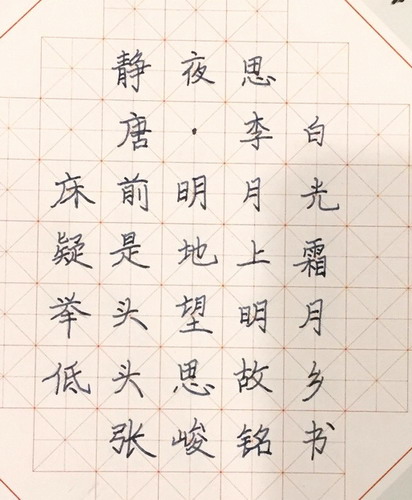 静夜思
唐·李白
床前明月光
疑是地上霜
举头望明月
低头思故乡
张峻铭书